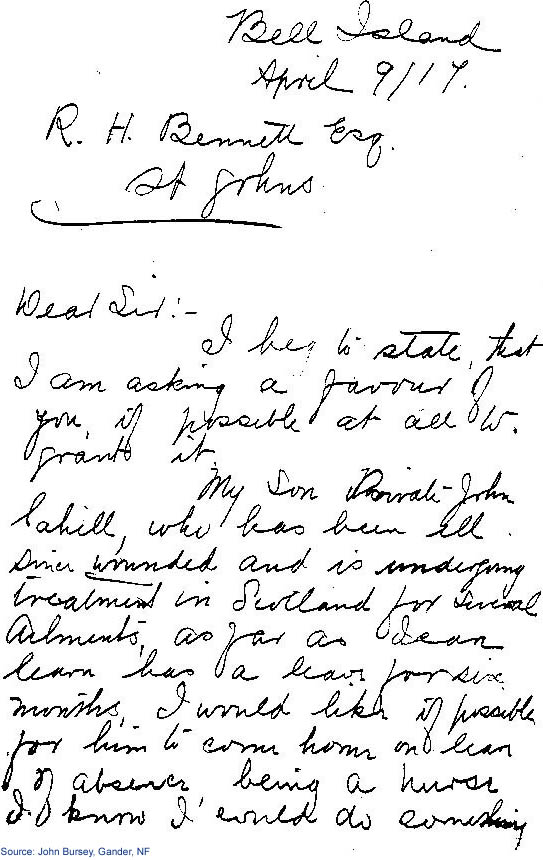 Bell Island
April 9/17.
R. H. Bennett Esq.
St Johns
Dear Sir:-
I beg to state, that
I am asking a favour of
you, if possible at all to
grant it.
My Son Private John
Cahill, who has been ill
since wounded and is undergoing
treatment in Scotland for several
Ailments, as far as I can
learn has a leave for six
months, I would like if possible
for him to come home on leave
of absence, being a nurse
I know I could do something
Source: John Bursey, Gander, NF